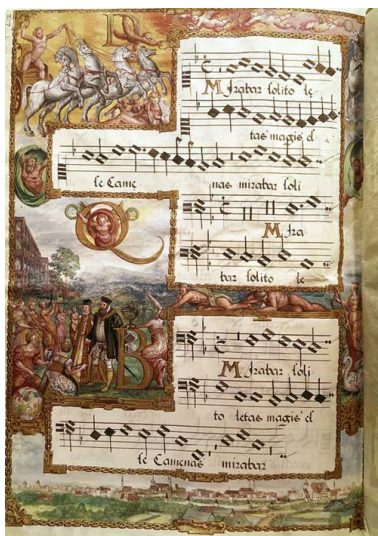 Mirabar solito le
tas magis ẽẽ
se Came nas mirabar soli
Mira
bar solito le
Mirabar soli
to letas magis ẽẽ
se Camenas mirabar